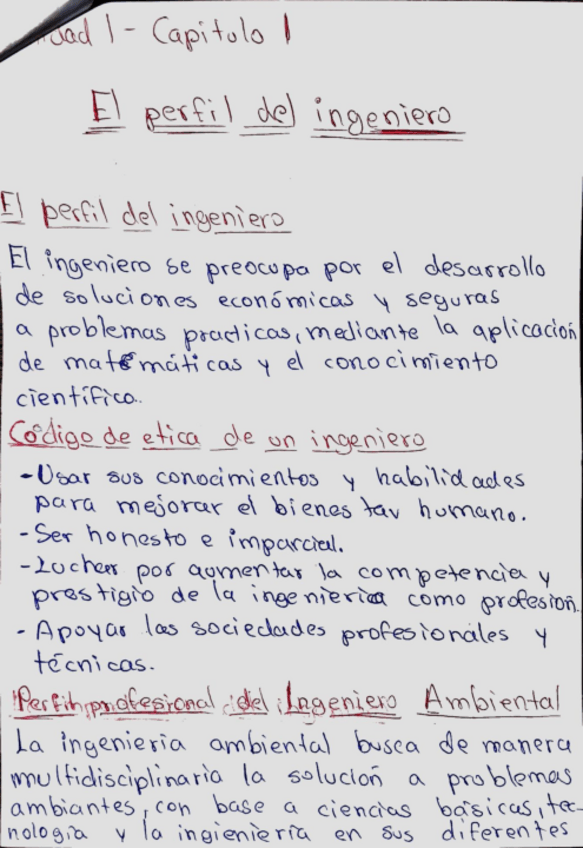 dad 1 - Capitulo 1
El perfil del ingeniero
El perfil del ingeniero
El ingeniero se preocupa por el desarrollo
de soluciones económicas y seguras
a problemas practicas, mediante la aplicación
de matemáticas y el conocimiento
científico.
Código de etica de un ingeniero
- Usar sus conocimientos y habilidades
para mejorar el bienestar humano.
- Ser honesto e imparcial.
- Luchar por aumentar la competencia y
prestigio de la ingenieria como profesión.
- Apoyar las sociedades profesionales y
técnicas.
Perfil profesional del Ingeniero Ambiental
La ingenieria ambiental busca de manera
multidisciplinaria la solución a problemas
ambiantes, con base a ciencias básicas, tec-
nología y la ingieniería en sus diferentes